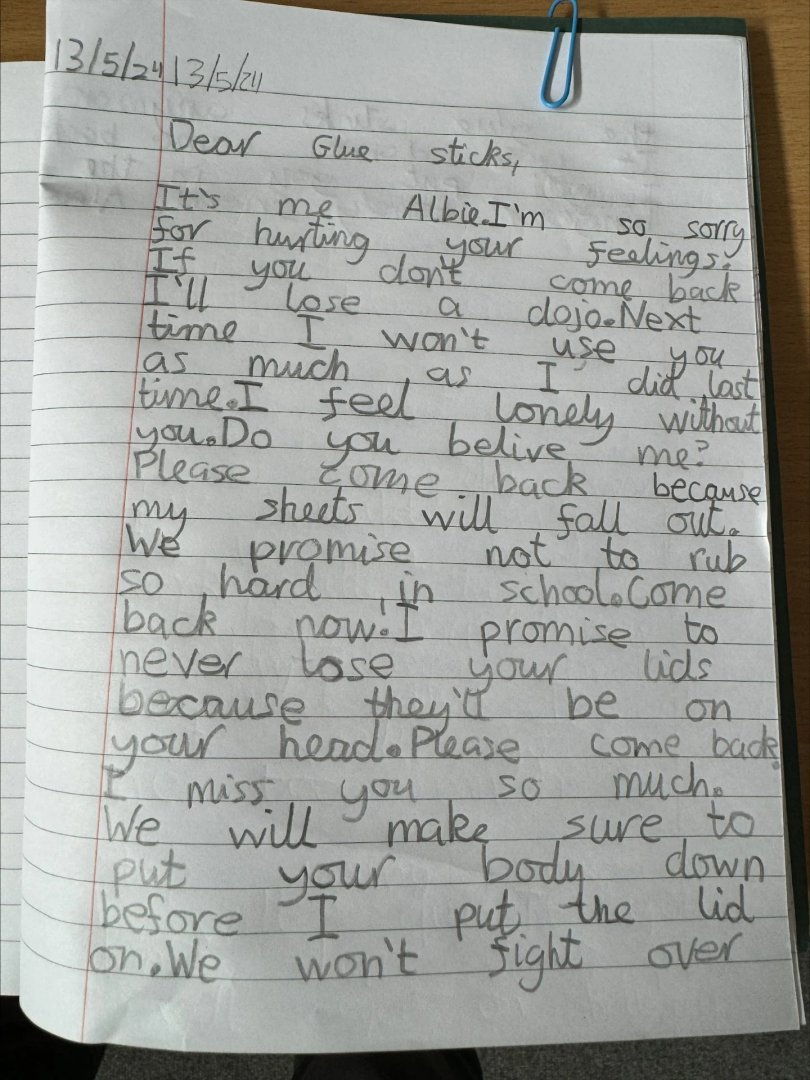 13/5/24 13/5/24
Dear Glue sticks,
It's me Albie.I'm so sorry
for hurting your feelings.
If you don't come back
I'll lose a dojo.Next
time I won't use you
as much as I did last
time.I feel lonely without
you.Do you belive me?
Please come back because
my sheets will fall out.
We promise not to rub
so hard in school.Come
back now!I promise to
never lose your lids
because they'll be on
your head.Please come back
I miss you so much.
We will make sure to
put your body down
before I put the lid
on.We won't fight over